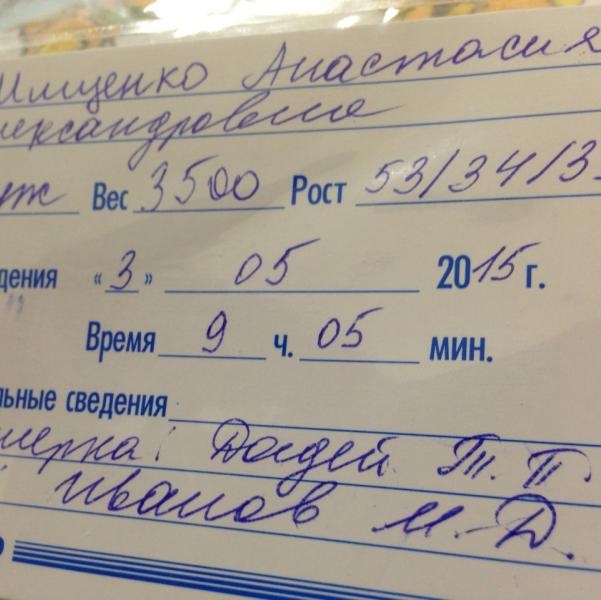 Имщенко Анастасия
лександровна
уж Вес 3500 Рост 53/34/3
дения «3» 05 2015 г.
Время 9 ч. 05 мин.
льные сведения
Дадей Т. П.
Иванов М. Д.